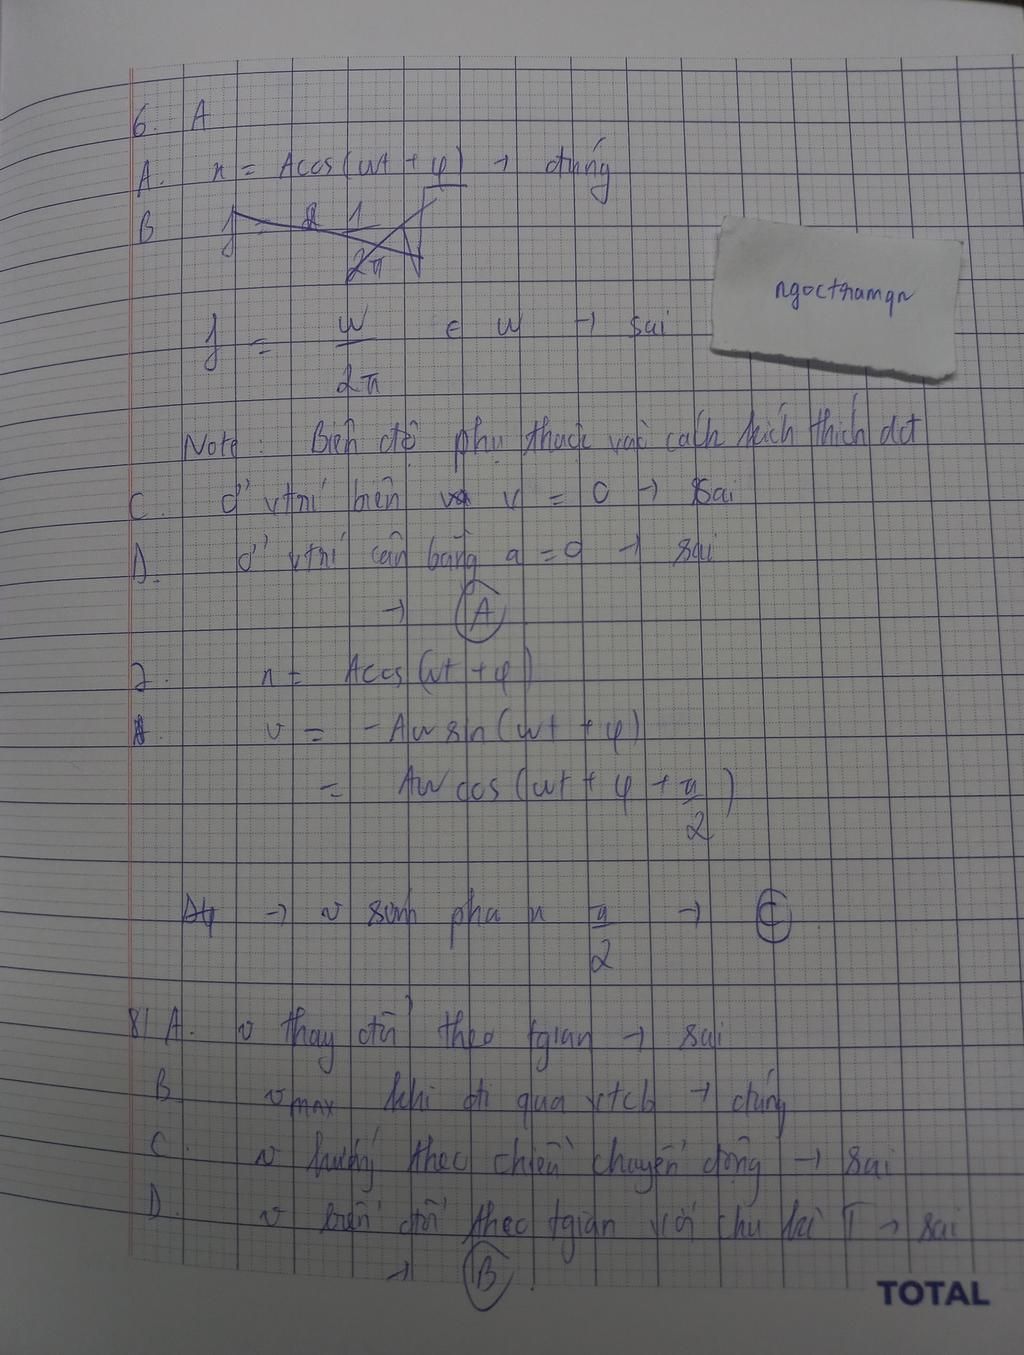 6. A
A. x = Acos(ωt + φ) → đúng
B f = 1/2π
ngoctramqn
f = ω/2π ∈ ω → sai
Note: Biên độ phụ thuộc vào cách kích thích dđ
C. Ở vtrí biên v = 0 → sai
D. Ở vtrí cân bằng a = 0 → sai
→ A
7. x = Acos(ωt + φ)
v = -Aω sin(ωt + φ)
= Aω cos(ωt + φ + π/2)
→ v sớm pha x π/2 → C
8/ A. v thay đổi theo tgian → sai
B v max khi đi qua vtcb → đúng
C. v hướng theo chiều chuyển động → sai
D. v biến đổi theo tgian với chu kì T → sai
→ B
TOTAL